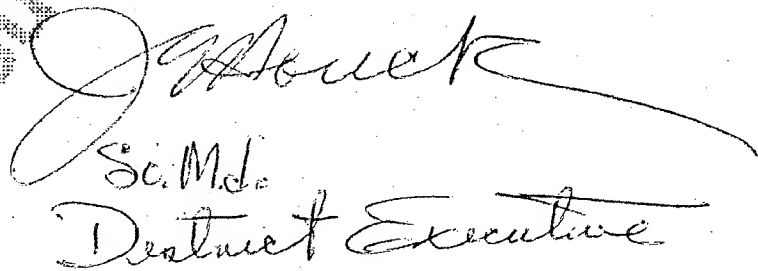 J H Houck
So. Md.
District Executive